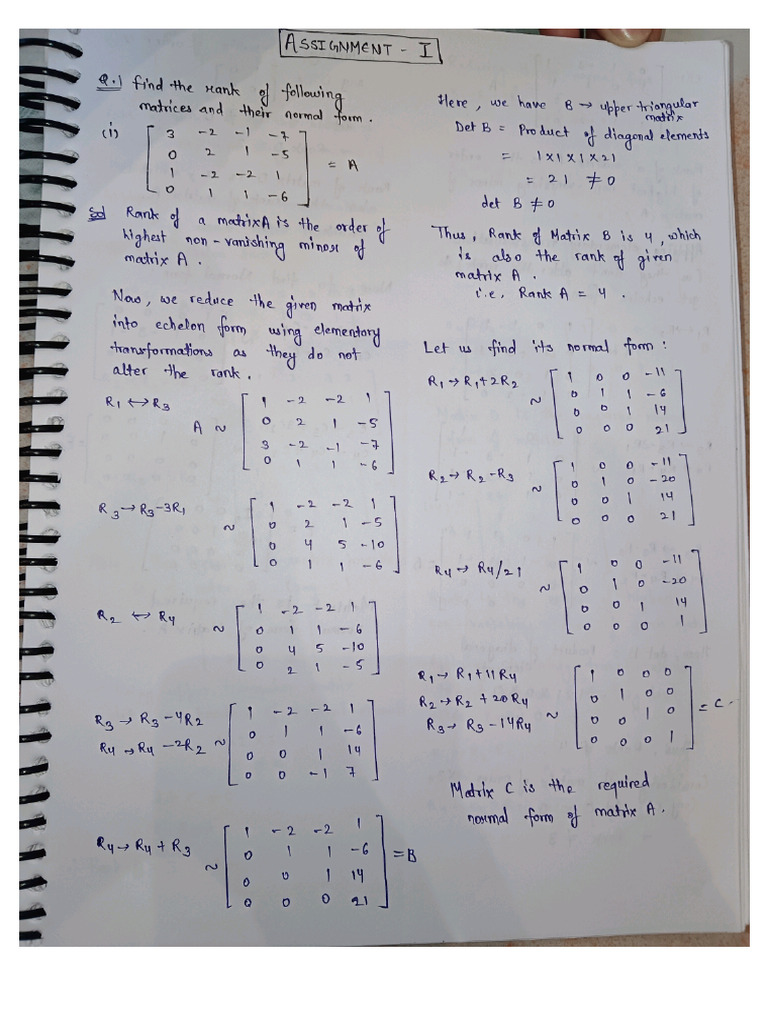 ASSIGNMENT - I
Q.1 find the rank of following
matrices and their normal form.
(i) [ 3 -2 -1 -7
0 2 1 -5
1 -2 -2 1
0 1 1 -6 ] = A
Sol Rank of a matrix A is the order of
highest non-vanishing minor of
matrix A.
Now, we reduce the given matrix
into echelon form using elementary
transformations as they do not
alter the rank.
R1 ↔ R3
A ~ [ 1 -2 -2 1
0 2 1 -5
3 -2 -1 -7
0 1 1 -6 ]
R3 → R3-3R1
~ [ 1 -2 -2 1
0 2 1 -5
0 4 5 -10
0 1 1 -6 ]
R2 ↔ R4
~ [ 1 -2 -2 1
0 1 1 -6
0 4 5 -10
0 2 1 -5 ]
R3 → R3 -4R2
R4 → R4 -2R2 ~ [ 1 -2 -2 1
0 1 1 -6
0 0 1 14
0 0 -1 7 ]
R4 → R4 + R3
~ [ 1 -2 -2 1
0 1 1 -6
0 0 1 14
0 0 0 21 ] = B
Here, we have B → upper triangular
matrix
Det B = Product of diagonal elements
= 1x1x1x21
= 21 ≠ 0
det B ≠ 0
Thus, Rank of Matrix B is 4, which
is also the rank of given
matrix A.
i.e, Rank A = 4.
Let us find its normal form:
R1 → R1+2R2
~ [ 1 0 0 -11
0 1 1 -6
0 0 1 14
0 0 0 21 ]
R2 → R2 - R3
~ [ 1 0 0 -11
0 1 0 -20
0 0 1 14
0 0 0 21 ]
R4 → R4/21
~ [ 1 0 0 -11
0 1 0 -20
0 0 1 14
0 0 0 1 ]
R1 → R1+11R4
R2 → R2 + 20R4
R3 → R3 -14R4 ~ [ 1 0 0 0
0 1 0 0
0 0 1 0
0 0 0 1 ] = C.
Matrix C is the required
normal form of matrix A.